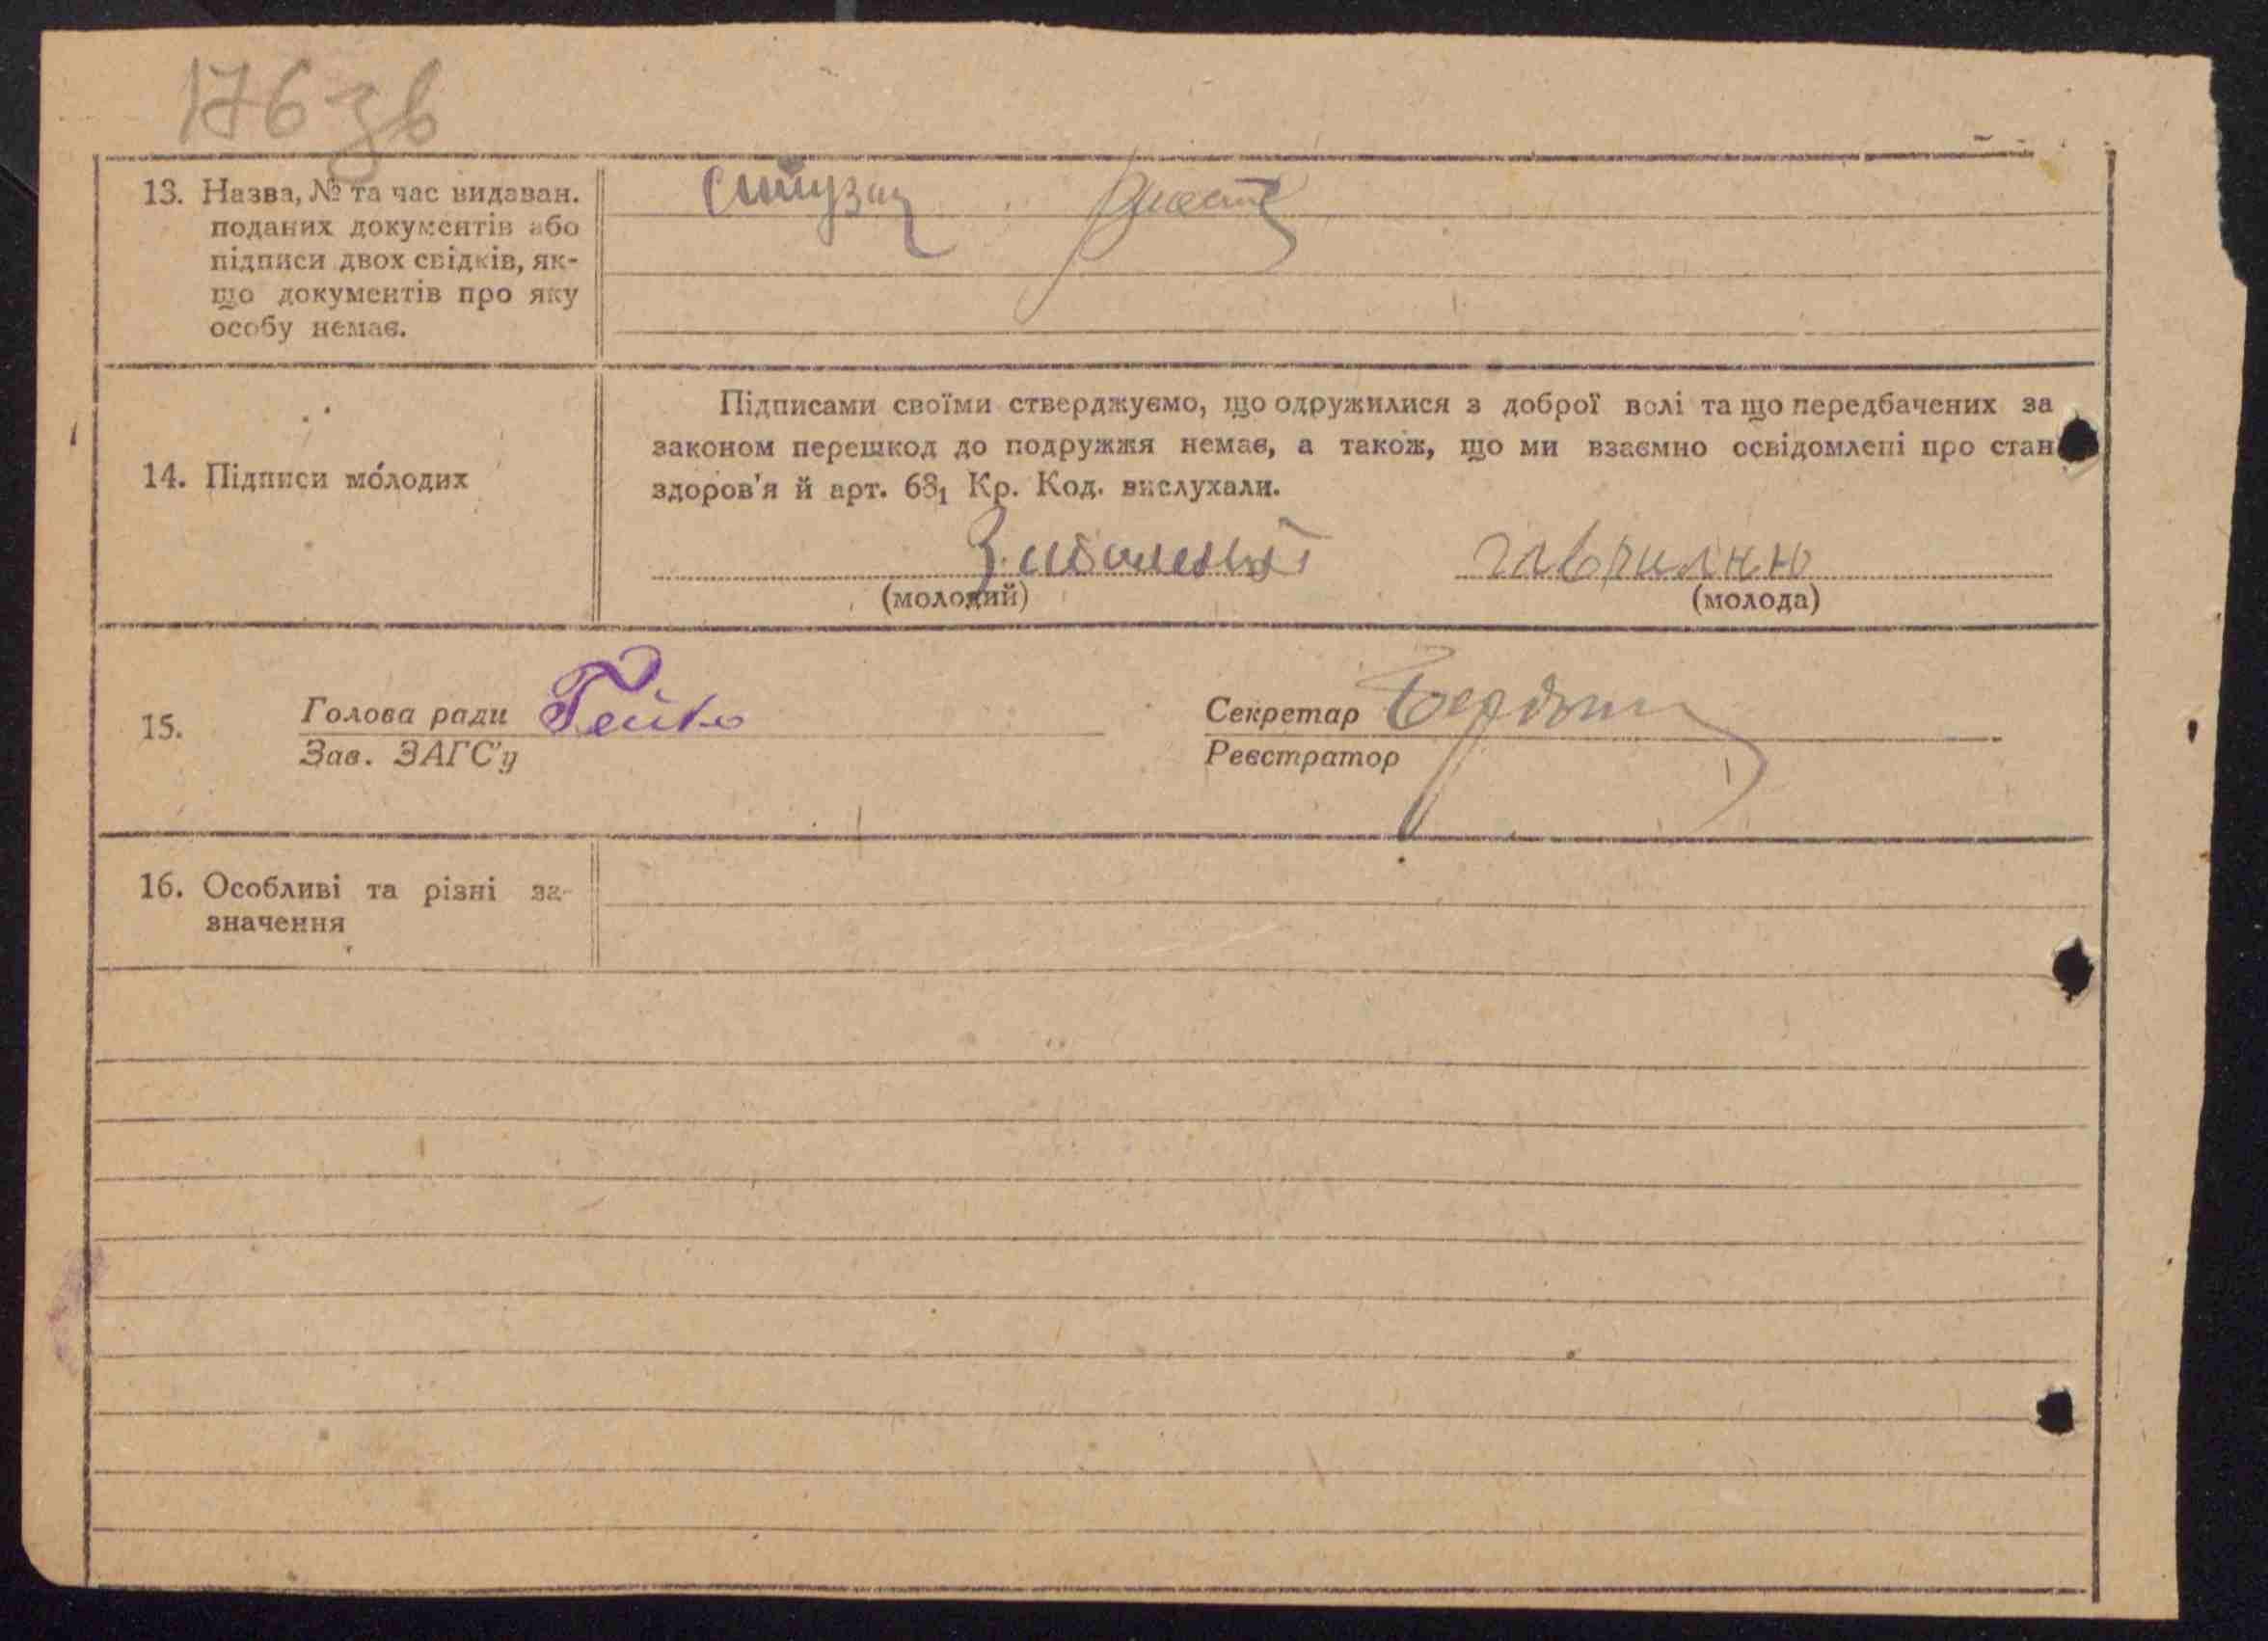 176 зв
13. Назва, № та час видаван.
поданих документів або
підписи двох свідків, як-
що документів про яку
особу немає.
14. Підписи молодих
Підписами своїми стверджуємо, що одружилися з доброї волі та що передбачених за
законом перешкод до подружжя немає, а також, що ми взаємно освідомлені про стан
здоров'я й арт. 68₁ Кр. Код. вислухали.
(молодий) (молода)
15. Голова ради Гейко
Зав. ЗАГС'у
Секретар
Реєстратор
16. Особливі та різні за-
значення